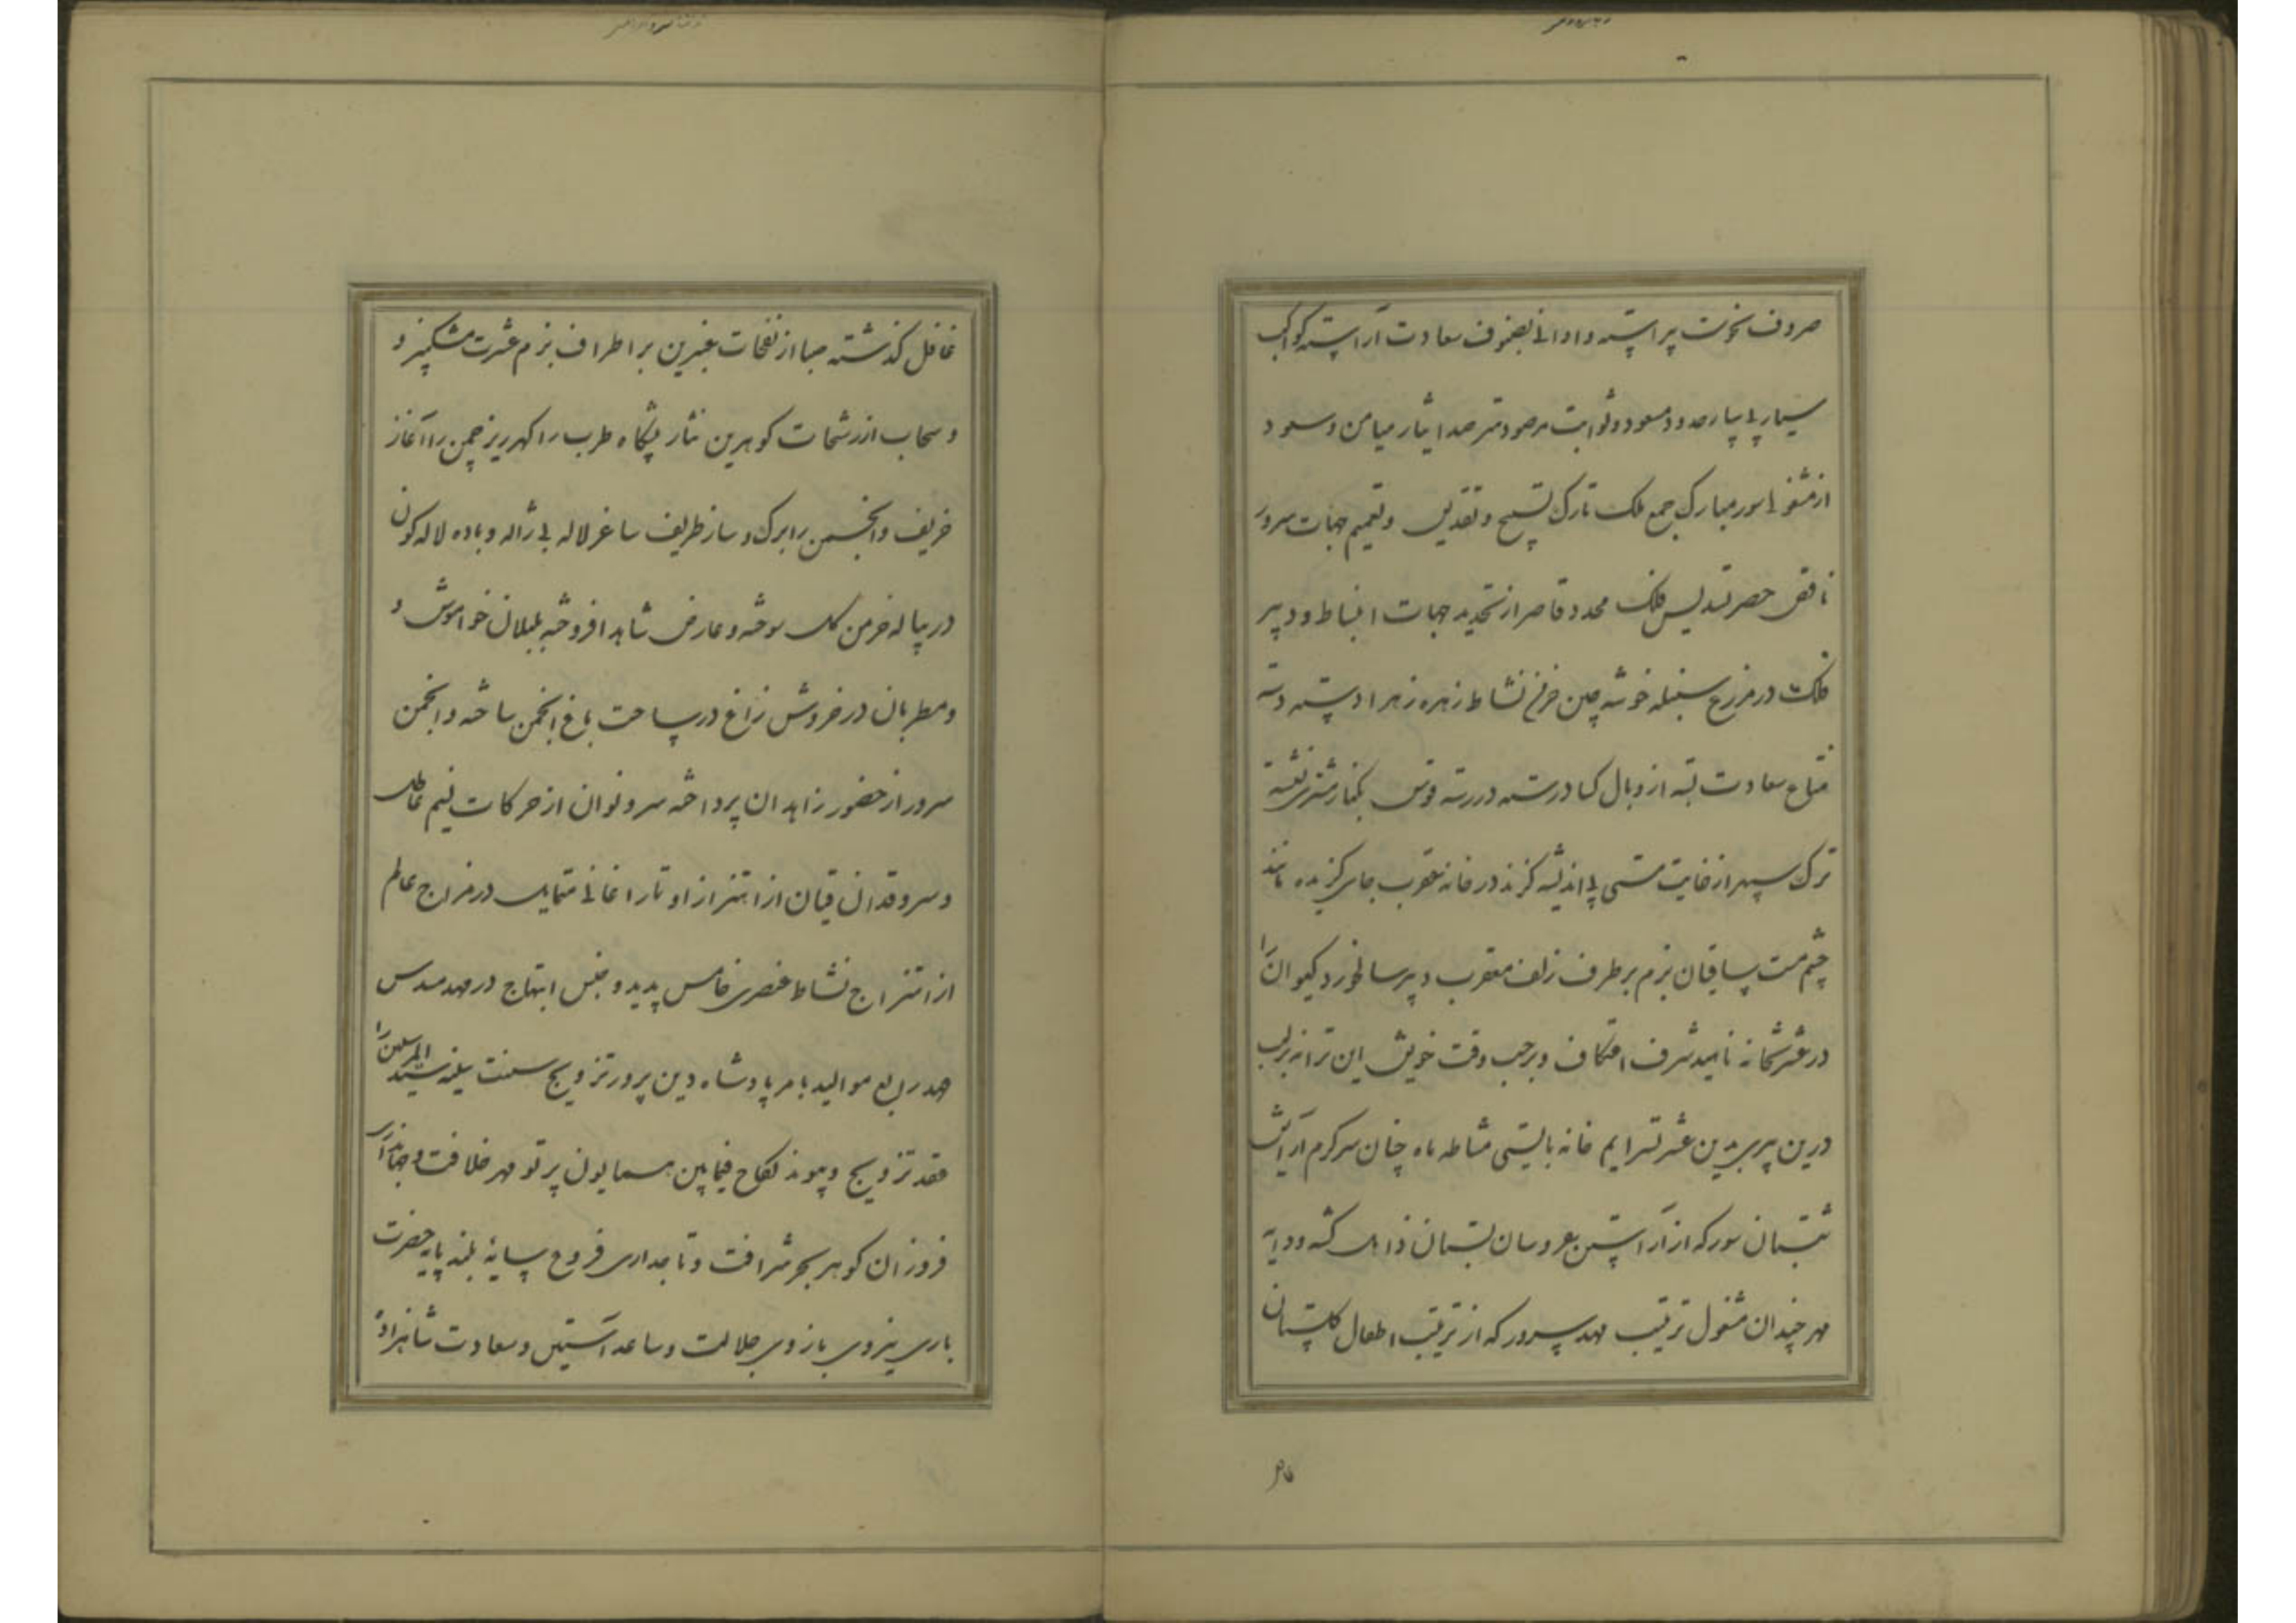 صروف نحوست پیراسته و اوانی بصنوف سعادت آراسته کواکب
سیار بی سپار حدود مسعود و ثوابت مرصود مترصد ایثار میامن و سعود
از مشغولی سور مبارک جمع ملک تارک تسبیح و تقدیس و تعمیم جهات سرور
ناقص حصر تسدیس فلک محدد قاصر از تحدید جهات انبساط و دبیر
فلک در مزرع سنبله خوشه چین خرمن نشاط زهره زهرا دسته دسته
متاع سعادت بسته از وبال کساد رسته در رسته قوس بکنار مشتری نشسته
ترک سپهر از غایت مستی بی اندیشه گزند در خانه عقرب جای گزیده مانند
چشم مست ساقیان بزم بر طرف زلف معقرب و پیر سالخورد کیوان را
در عشرتخانه ناهید شرف اعتکاف و بر حسب وقت خویش این ترانه بر لب
درین پیری بدین عشرتسرایم خانه بایستی مشاطه ماه چنان سرکرم آرایش
شبستان سور که از آراستن عروسان بستان ذاهل کشته و دایه
مهر چندان مشغول ترتیب مهد سرور که از تربیت اطفال گلستان
غافل
غافل کذشته صبا از نفحات عنبرین بر اطراف بزم عشرت مشکبیز و
و سحاب از رشحات کوهرین نثار پیشگاه طرب را کهرریز چمن را آغاز
خریف و انجمن را برک و ساز ظریف ساغر لاله بی ژاله و باده لاله کون
در پیاله خرمن کل سوخته و عارض شاهد افروخته بلبلان خواموش و
و مطربان در خروش زاغ در ساحت باغ انجمن ساخته و انجمن
سرور از حضور زاهدان پرداخته سرو نوان از حرکات نسیم عاطل
و سروقدان قیان از اهتزاز اوتار اغانی متمایل در مزاج عالم
از امتزاج نشاط عنصری خامس پدید و جنس ابتهاج در مهد مسدس
عهد رابع موالید بامر پادشاه دین پرور ترویج سنت سنیه سید المرسلین را
عقد تزویج و پیوند نکاح فیما بین همایون پرتو مهر خلافت و جهانداری
فروزان کوهر بحر شرافت و تاجداری فروع سایه بلند پایه حضرت
باری نیروی بازوی جلالت و ساعد آستین و سعادت شاهزاده